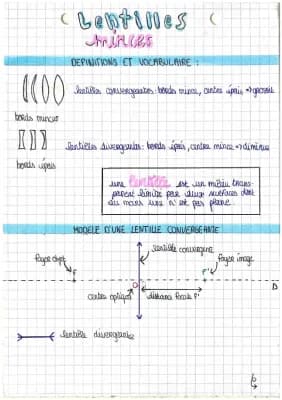 Lentilles
minces
DEFINITIONS ET VOCABULAIRE :
lentilles convergentes: bords mince, centre épais => grossit
bords minces
lentilles divergentes: bords épais, centre mince => diminue
bords épais
une lentille est un milieu trans-
parent limité par deux surfaces dont
au moins une n'est pas plane.
MODELE D'UNE LENTILLE CONVERGEANTE
lentille convergente
foyer objet
foyer image
F
F'
O
Δ
centre optique
distance focale F'
lentille divergente